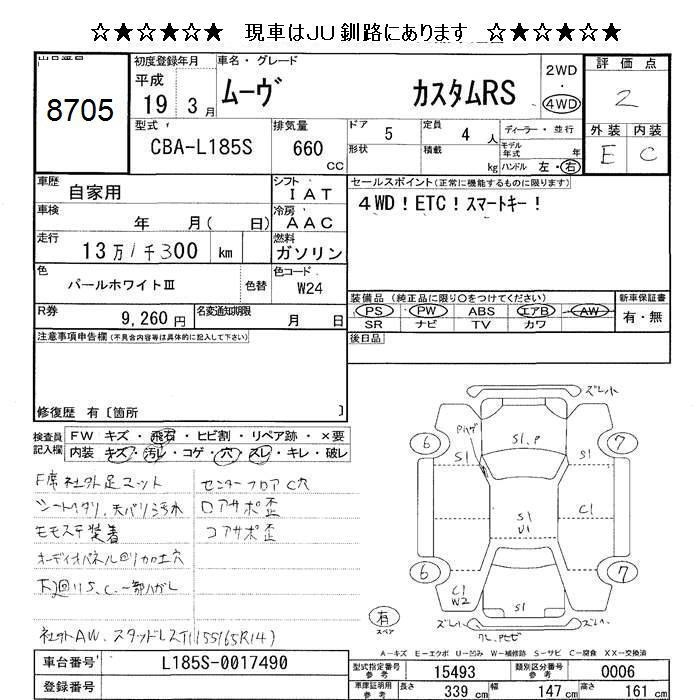 ☆★☆★☆★ 現車はJU釧路にあります ☆★☆★☆★
出品番号 初度登録年月 車名・グレード 評価点
8705 平成 19 3月 ムーヴ カスタムRS 2WD 4WD 2
型式 排気量 ドア 定員 ディーラー・並行 外装 内装
CBA-L185S 660 cc 5 4人 モデル年式 年 E C
形状 積載 kg ハンドル 左・右
車歴 自家用 シフト IAT セールスポイント(正常に機能するものに限ります)
車検 年 月( 日) 冷房 AAC 4WD!ETC!スマートキー!
走行 13万1千300 km 燃料 ガソリン
色 パールホワイトⅢ 色替 色コード W24
装備品(純正品に限り○をつけてください) 新車保証書
R券 9,260円 名変通知期限 月 日 PS PW ABS エアB AW 有・無
SR ナビ TV カワ
注意事項申告欄(不具合内容等は具体的に記入して下さい) 後日品
修復歴 有〔箇所 〕
検査員記入欄 FW キズ・飛石・ヒビ割・リペア跡・×要
内装 キズ・汚レ・コゲ・穴・スレ・キレ・破レ
F席社外足マット センターフロアC穴
シートスリ、天バリ汚水 ロアサポ歪
モモステ装着 コアサポ歪
オーディオパネル回り加工穴
下廻りS.C.一部ハガレ
社外AW、スタッドレスT(155/65R14)
ズレ小
Pハゲ S1.P
6 S1 S1 7
S1 U1 C1
6 C1 W2 S1 7
有 スペア ズレ小 ズレ小
A-キズ E-エクボ U-凹み W-補修跡 S-サビ C-腐食 XX-交換済
車台番号 L185S-0017490 型式指定番号 参考 15493 類別区分番号 参考 0006
登録番号 車庫証明用 参考 長さ 339 cm 幅 147 cm 高さ 161 cm